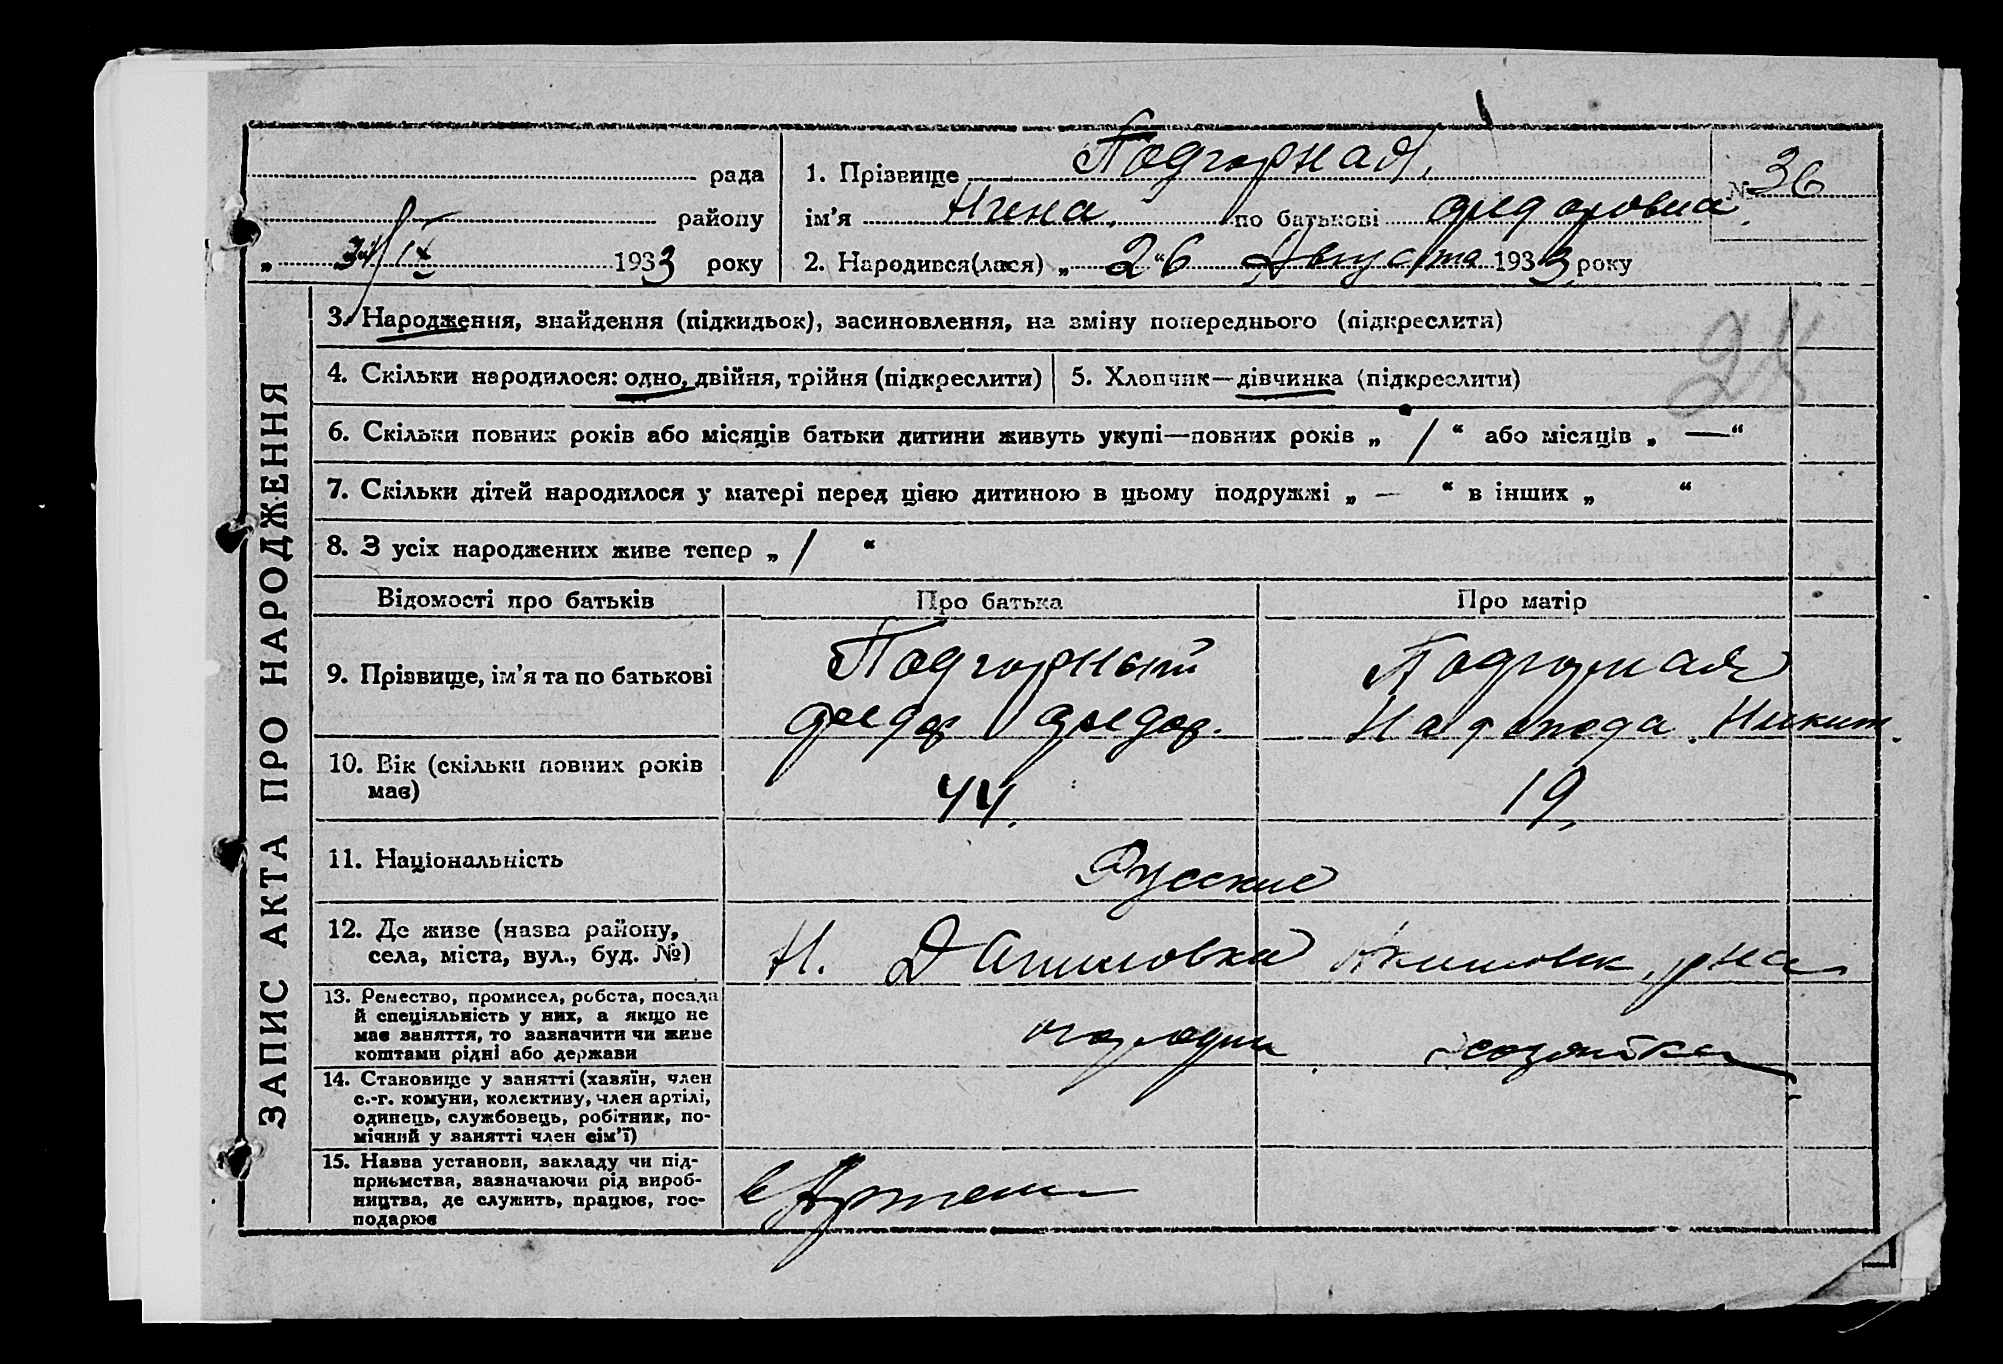 рада
району
„ 3/IX 1933 року
1. Прізвище Подгорная
ім’я Нина по батькові Федоровна
2. Народився(лася) „26“ Августа 1933 року
№ 36
3. Народження, знайдення (підкидьок), засиновлення, на зміну попереднього (підкреслити)
4. Скільки народилося: одно, двійня, трійня (підкреслити)
5. Хлопчик—дівчинка (підкреслити)
6. Скільки повних років або місяців батьки дитини живуть укупі—повних років „ 1 “ або місяців „ — “
7. Скільки дітей народилося у матері перед цією дитиною в цьому подружжі „ — “ в інших „ “
8. З усіх народжених живе тепер „ 1 “
ЗАПИС АКТА ПРО НАРОДЖЕННЯ
Відомості про батьків
Про батька
Про матір
9. Прізвище, ім’я та по батькові
Подгорный
Федор Федор.
Подгорная
Никит.
10. Вік (скільки повних років має)
44.
19.
11. Національність
Русские
12. Де живе (назва району,
села, міста, вул., буд. №)
Н. Даниловка Акимовск. р-на
13. Ремество, промисел, робота, посада
й спеціяльність у них, а якщо не
має заняття, то зазначити чи живе
коштами рідні або держави
хозяйка
14. Становище у занятті (хазяїн, член
с.-г. комуни, колективу, член артілі,
одинець, службовець, робітник, по-
мічний у занятті член сім’ї)
15. Назва установи, закладу чи під-
приємства, зазначаючи рід вироб-
ництва, де служить, працює, гос-
подарює
в Артели